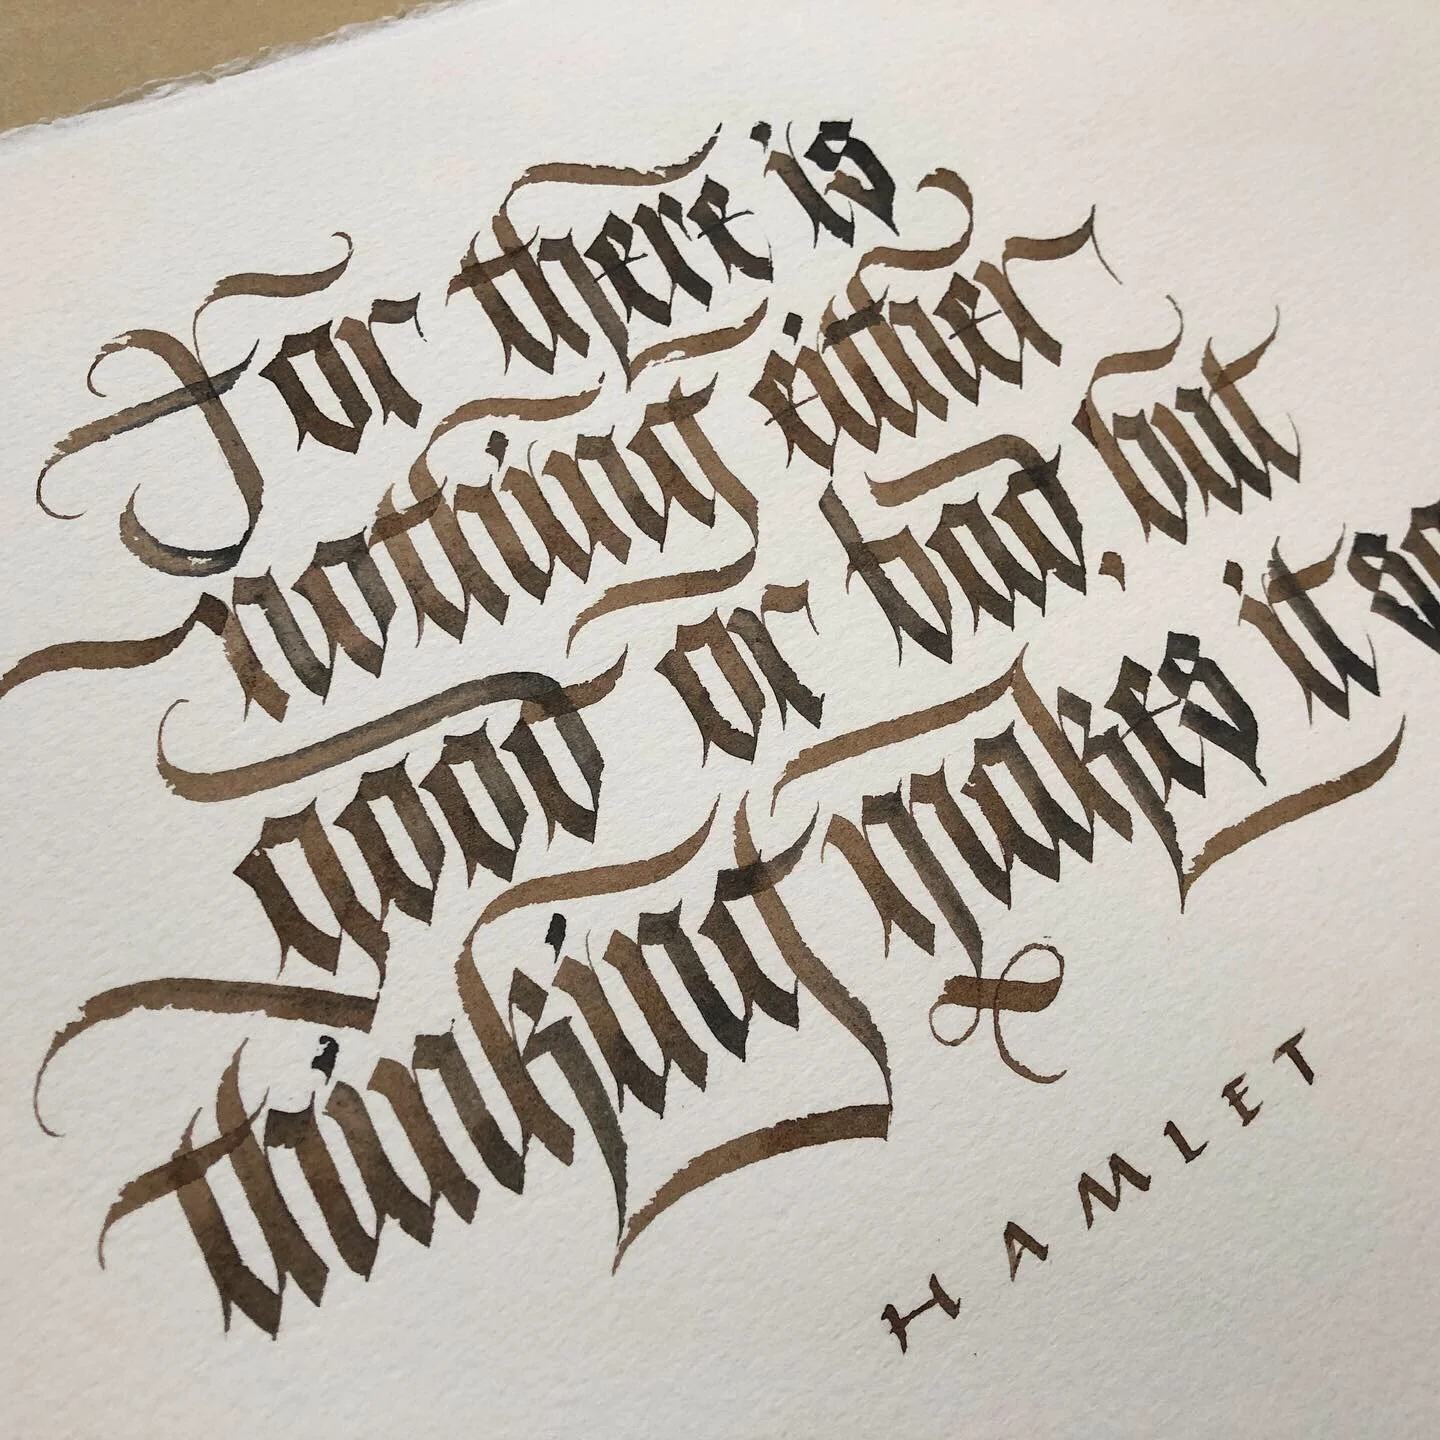 For there is
nothing either
good or bad, but
thinking makes it so
HAMLET